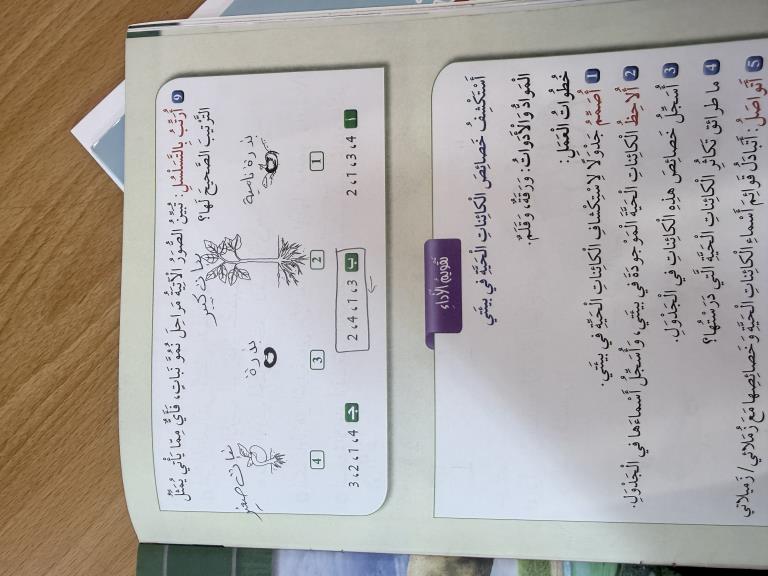 9 أُرَتِّبُ بِالتَّسَلْسُلِ: تُبَيِّنُ الصُّوَرُ الْآتِيَةُ مَراحِلَ نُمُوِّ نَباتٍ، فَأَيٌّ مِمّا يَأْتي يُمَثِّلُ
التَّرْتيبَ الصَّحيحَ لَها؟
بذرة نامية
نبات كبير
بذرة
نبات صغير
1 2 3 4
أ 4، 3، 1، 2
ب 3، 1، 4، 2
جـ 4، 1، 2، 3
تَقْويمُ الْأَداءِ
أَسْتَكْشِفُ خَصائِصَ الْكائِناتِ الْحَيَّةِ في بيئَتي
الْمَوادُّ وَالْأَدَواتُ: وَرَقَةٌ، وَقَلَمٌ.
خُطُواتُ الْعَمَلِ:
1 أُصَمِّمُ جَدْوَلًا لِاسْتِكْشافِ الْكائِناتِ الْحَيَّةِ في بيئَتي.
2 أُلاحِظُ الْكائِناتِ الْحَيَّةَ الْمَوْجودَةَ في بيئَتي، وَأُسَجِّلُ أَسْماءَها في الْجَدْوَلِ.
3 أُسَجِّلُ خَصائِصَ هذِهِ الْكائِناتِ في الْجَدْوَلِ.
4 ما طَرائِقُ تَكاثُرِ الْكائِناتِ الْحَيَّةِ الَّتي دَرَسْتُها؟
5 أَتَواصَلُ: أَتَبادَلُ قَوائِمَ أَسْماءِ الْكائِناتِ الْحَيَّةِ وَخَصائِصِها مَعَ زُمَلائي/ زَميلاتي